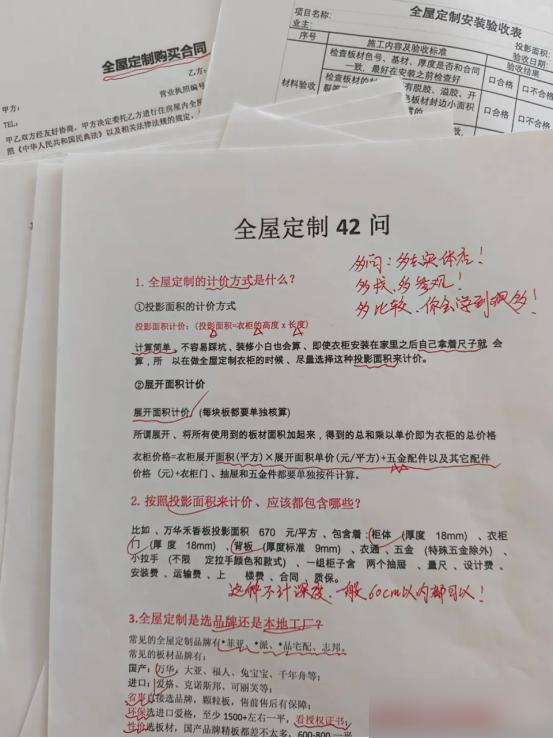 全屋定制购买合同
乙方:
营业执照编号
甲方:
TEL:
甲乙双方经友好协商，甲方决定委托乙方进行住房屋内全屋
照《中华人民共和国民典法》以及相关法律法规的规定，
全屋定制安装验收表
项目名称:
业主:
投影面积:
验收日期:
序号
施工内容及验收标准
验收结果
材料验收
检查板材色号、基材、厚度是否和合同
一致，最好在安装之前检查好
口合格
口不合格
有脱胶、溢胶、开
色板材封边小面积
口合格
口不合格
全屋定制 42 问
多问：多去实体店！
多找、多参观！
多比较、你会学到很多！
1. 全屋定制的计价方式是什么？
①投影面积的计价方式
投影面积计价：(投影面积=衣柜的高度 x 长度)
计算简单、不容易踩坑、装修小白也会算、即使衣柜安装在家里之后自己拿着尺子就 会
算，所 以在做全屋定制衣柜的时候、尽量选择这种投影面积来计价。
②展开面积计价
展开面积计价 (每块板都要单独核算)
所谓展开、将所有使用到的板材面积加起来，得到的总和乘以单价即为衣柜的总价格
衣柜价格=衣柜展开面积(平方)×展开面积单价(元/平方)+五金配件以及其它配件
价格 (元)+衣柜门、抽屉和五金件都要单独按件计算。
2. 按照投影面积来计价、应该都包含哪些？
比如 、万华禾香板投影面积 670 元/平方 、包含着：柜体 (厚度 18mm) 、衣柜
门 (厚 度 18mm) 、背板 (厚度标准 9mm) 、衣通 、五金 (特殊五金除外) 、
小拉手 (不限 定拉手颜色和款式) 、一组柜子含 两个抽屉 、量尺 、设计费 、
安装费 、运输费 、上 楼费 、合同 质保。
这种不计深度、一般60cm以内都可以！
3.全屋定制是选品牌还是本地工厂？
常见的全屋定制品牌有*菲亚、*派、*品宅配、志邦，
常见的板材品牌有：
国产：万华、大亚、福人、兔宝宝、千年舟等；
进口：爱格、克诺斯邦、可丽芙等；
省事直接选品牌，颗粒板，售前售后有保障；
环保选进口爱格，至少 1500+左右一平，看授权证书；
性价选板材，国产品牌精板都差不多，600-800 一平